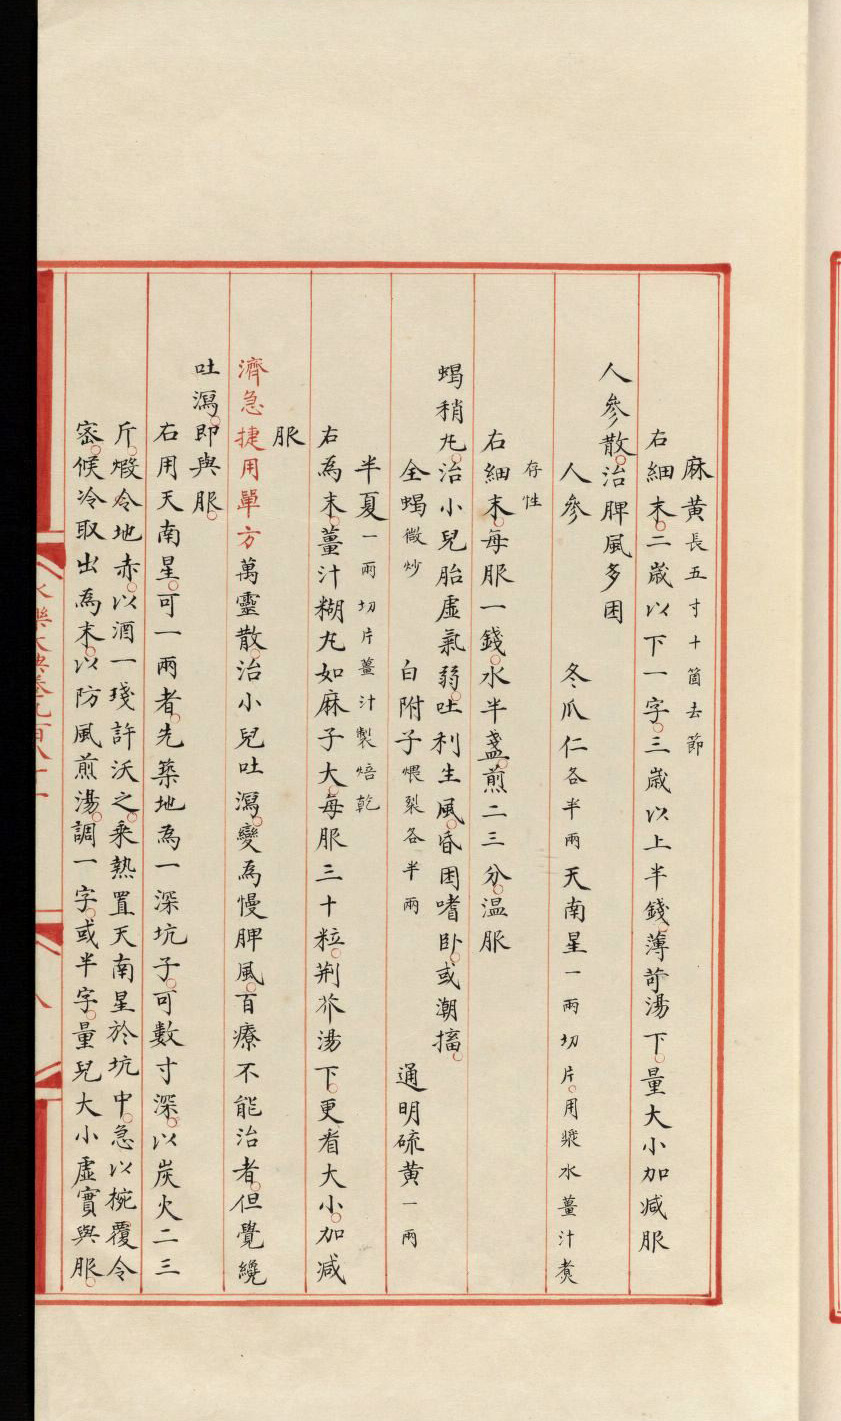 麻黄長五寸十箇去節
右細末。二歲以下一字。三歲以上半錢。薄苛湯下。量大小加減服
人參散。治脾風多困
人參 冬瓜仁各半兩 天南星一兩切片。用漿水薑汁煑
存性
右細末。每服一錢。水半盞。煎二三分。温服
蝎稍丸。治小兒胎虛氣弱。吐利生風。昏困嗜卧。或潮搐。
全蝎微炒 白附子煨裂各半兩 通明硫黄一兩
半夏一兩切片薑汁製焙乾
右為末。薑汁糊丸如麻子大。每服三十粒。荆芥湯下。更看大小。加減
服
濟急捷用單方萬靈散。治小兒吐瀉。變為慢脾風。百療不能治者。但覺纔
吐瀉。即與服。
右用天南星。可一兩者。先築地為一深坑子。可數寸深。以炭火二三
斤。煅令地赤。以酒一琖許沃之。乘熱置天南星於坑中。急以椀覆令
宻。候冷取出為末。以防風煎湯。調一字。或半字。量兒大小虛實與服。
永樂大典卷九百八十一
八